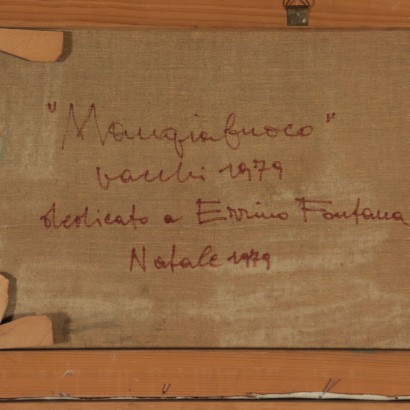 "Mangiafuoco"
vacchi 1979
dedicato a Errino Fontana
Natale 1979